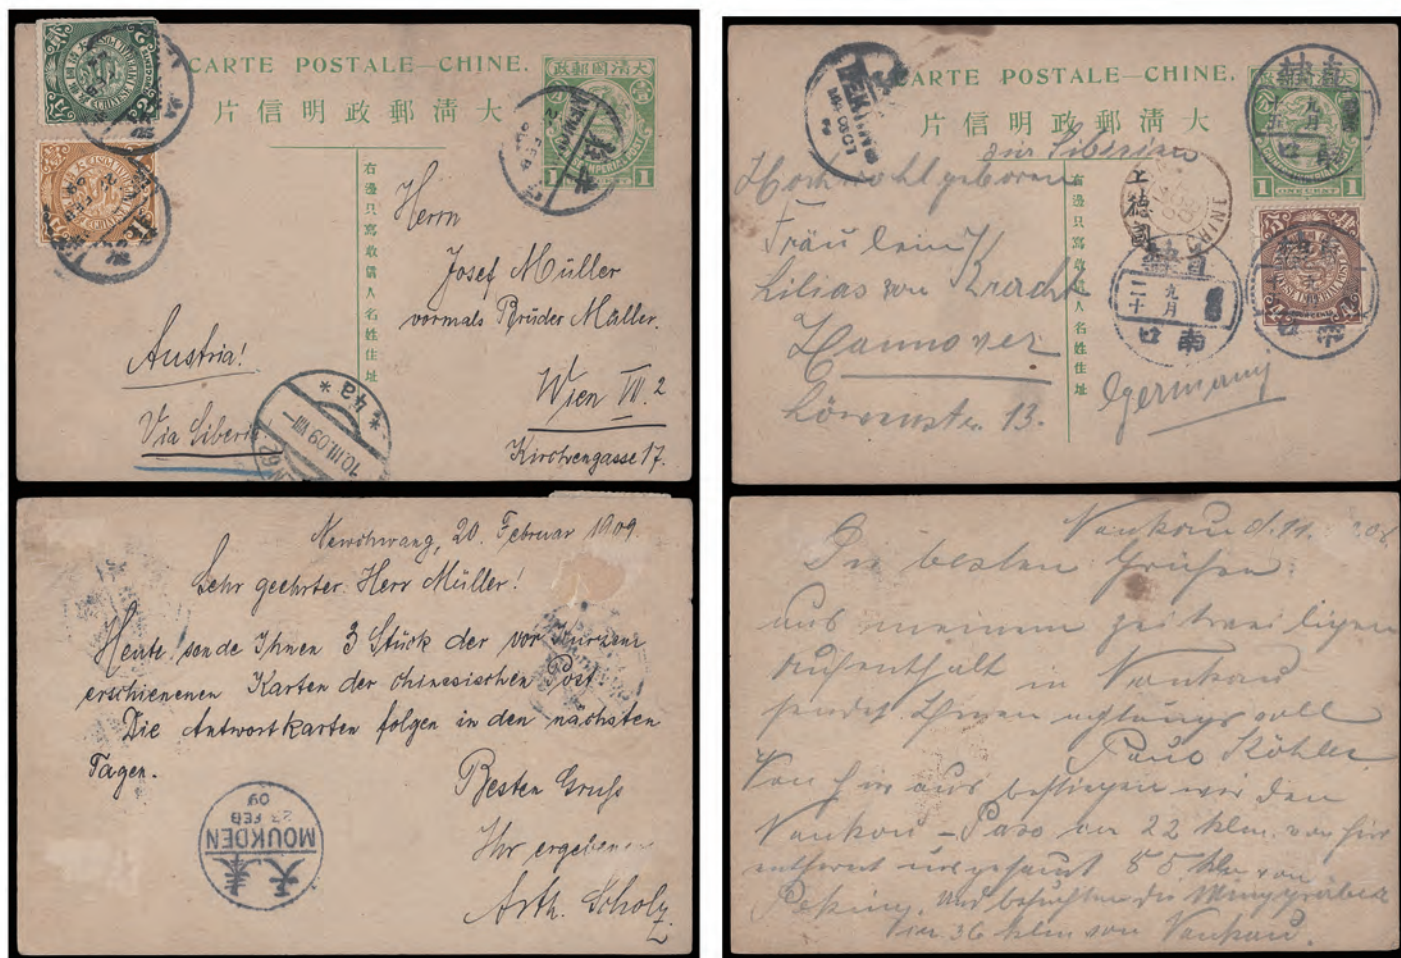 CARTE POSTALE—CHINE.
片信明政郵清大
政郵國清大
1 1
右邊只寫收信人名姓住址
Herrn
Josef Müller
vormals Brüder Müller.
Wien VII. 2
Kirchengasse 17.
Austria!
Via Siberia
10.III.09.VIII
* 4a *
Newchwang, 20. Februar 1909.
Sehr geehrter Herr Müller!
Heute sende Ihnen 3 Stück der vor kurzem
erschienenen Karten der chinesischen Post.
Die Antwortkarten folgen in den nächsten
Tagen.
Besten Gruß
Ihr ergebener
Arth. Scholz
MOUKDEN
23 FEB
09
CARTE POSTALE—CHINE.
片信明政郵清大
政郵國清大
1 ONE CENT 1
右邊只寫收信人名姓住址
zur Sibirien
Hochwohlgeboren
Fräulein
Lilias von
Hannover
13.
Germany
PEKING
九月
十五
口
上德國
CHINE
九月
二十
口南
Nankou d. 08.
Die besten Grüßen
aus meinem zeitweiligen
Aufenthalt in Nankou
sendet Ihnen achtungsvoll
Paul Köhler
Von hier aus bestiegen wir den
Nankou - Pass 22 klm. von hier
entfernt insgesamt 85 klm von
Peking, und besuchten die Minggräber
36 klm von Nankou.